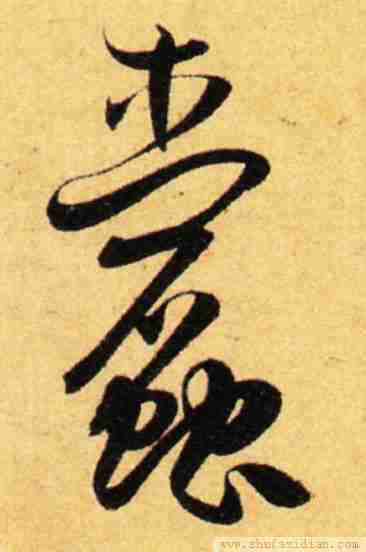 蠹
www.shufazidian.com